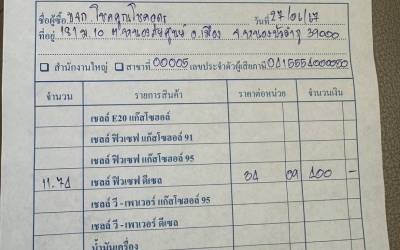 ชื่อผู้ซื้อ หจก. โชคคูณโชคอุดร วันที่ 27/01/67
ที่อยู่ 181 ม.10 ต.หนองภัยศูนย์ อ.เมือง จ.หนองบัวลำภู 39000
สำนักงานใหญ่ สาขาที่ 00005 เลขประจำตัวผู้เสียภาษี
จำนวน รายการสินค้า ราคาต่อหน่วย จำนวนเงิน
เชลล์ E20 แก๊สโซฮอล์
เชลล์ ฟิวเซฟ แก๊สโซฮอล์ 91
เชลล์ ฟิวเซฟ แก๊สโซฮอล์ 95
11.74 เชลล์ ฟิวเซฟ ดีเซล 34 09 400 -
เชลล์ วี - เพาเวอร์ แก๊สโซฮอล์ 95
เชลล์ วี - เพาเวอร์ ดีเซล
น้ำมันเครื่อง